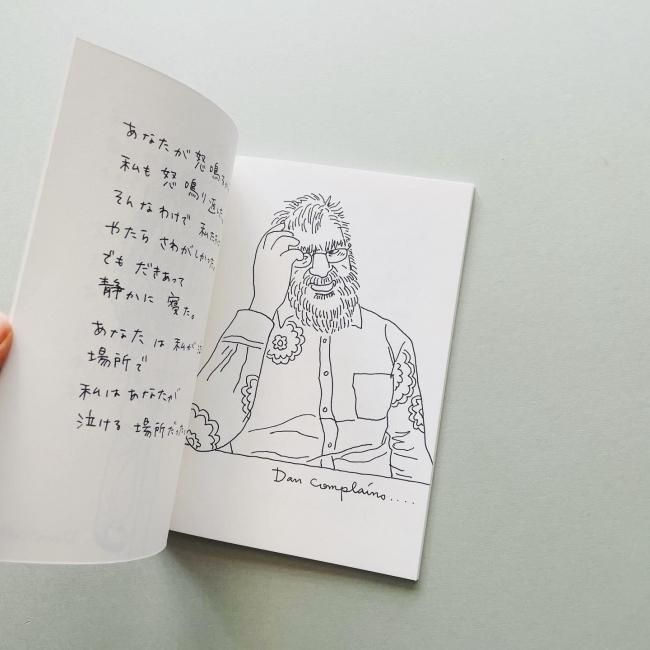 あなたが 怒鳴るから
私も 怒鳴り返した
そんなわけで 私たちは
やたら さわがしかった。
でも だきあって
静かに 寝た。
あなたは 私が
場所で
私は あなたが
泣ける 場所だった
Dan complains....